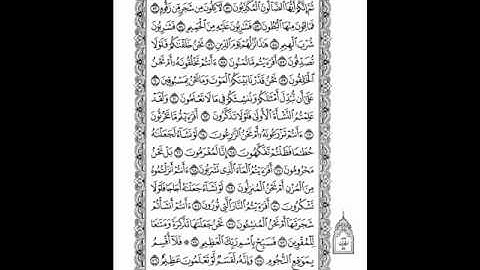 ثُمَّ إِنَّكُمْ أَيُّهَا ٱلضَّآلُّونَ ٱلْمُكَذِّبُونَ ٥١ لَءَاكِلُونَ مِن شَجَرٍ مِّن زَقُّومٍ ٥٢
فَمَالِـُٔونَ مِنْهَا ٱلْبُطُونَ ٥٣ فَشَٰرِبُونَ عَلَيْهِ مِنَ ٱلْحَمِيمِ ٥٤ فَشَٰرِبُونَ
شُرْبَ ٱلْهِيمِ ٥٥ هَٰذَا نُزُلُهُمْ يَوْمَ ٱلدِّينِ ٥٦ نَحْنُ خَلَقْنَٰكُمْ فَلَوْلَا
تُصَدِّقُونَ ٥٧ أَفَرَءَيْتُم مَّا تُمْنُونَ ٥٨ ءَأَنتُمْ تَخْلُقُونَهُۥٓ أَمْ نَحْنُ
ٱلْخَٰلِقُونَ ٥٩ نَحْنُ قَدَّرْنَا بَيْنَكُمُ ٱلْمَوْتَ وَمَا نَحْنُ بِمَسْبُوقِينَ ٦٠
عَلَىٰٓ أَن نُّبَدِّلَ أَمْثَٰلَكُمْ وَنُنشِئَكُمْ فِى مَا لَا تَعْلَمُونَ ٦١ وَلَقَدْ
عَلِمْتُمُ ٱلنَّشْأَةَ ٱلْأُولَىٰ فَلَوْلَا تَذَكَّرُونَ ٦٢ أَفَرَءَيْتُم مَّا تَحْرُثُونَ
٦٣ ءَأَنتُمْ تَزْرَعُونَهُۥٓ أَمْ نَحْنُ ٱلزَّٰرِعُونَ ٦٤ لَوْ نَشَآءُ لَجَعَلْنَٰهُ
حُطَٰمًا فَظَلْتُمْ تَفَكَّهُونَ ٦٥ إِنَّا لَمُغْرَمُونَ ٦٦ بَلْ نَحْنُ
مَحْرُومُونَ ٦٧ أَفَرَءَيْتُمُ ٱلْمَآءَ ٱلَّذِى تَشْرَبُونَ ٦٨ ءَأَنتُمْ أَنزَلْتُمُوهُ
مِنَ ٱلْمُزْنِ أَمْ نَحْنُ ٱلْمُنزِلُونَ ٦٩ لَوْ نَشَآءُ جَعَلْنَٰهُ أُجَاجًا فَلَوْلَا
تَشْكُرُونَ ٧٠ أَفَرَءَيْتُمُ ٱلنَّارَ ٱلَّتِى تُورُونَ ٧١ ءَأَنتُمْ أَنشَأْتُمْ
شَجَرَتَهَآ أَمْ نَحْنُ ٱلْمُنشِـُٔونَ ٧٢ نَحْنُ جَعَلْنَٰهَا تَذْكِرَةً وَمَتَٰعًا
لِّلْمُقْوِينَ ٧٣ فَسَبِّحْ بِٱسْمِ رَبِّكَ ٱلْعَظِيمِ ٧٤ ۞ فَلَآ أُقْسِمُ
بِمَوَٰقِعِ ٱلنُّجُومِ ٧٥ وَإِنَّهُۥ لَقَسَمٌ لَّوْ تَعْلَمُونَ عَظِيمٌ ٧٦